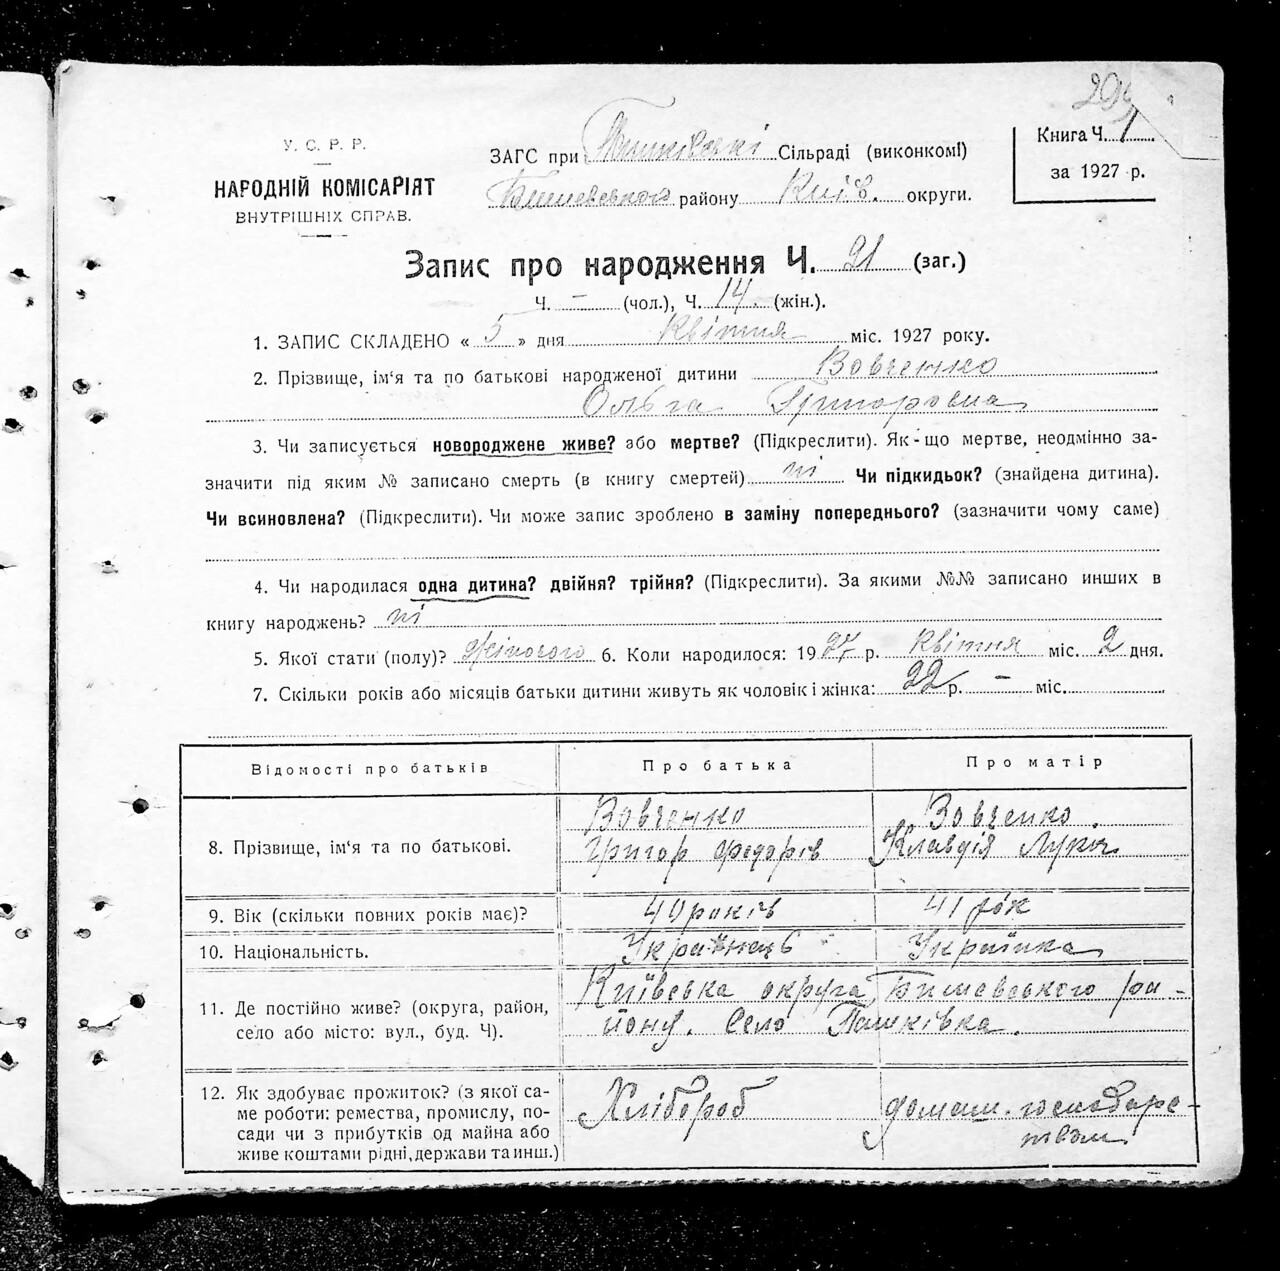 У. С. Р. Р.
НАРОДНІЙ КОМІСАРІЯТ
ВНУТРІШНІХ СПРАВ.
ЗАГС при Пашківській Сільраді (виконкомі)
Бишевського району Київ. округи.
Книга Ч. 1
за 1927 р.
Запис про народження Ч. 21 (заг.)
Ч. – (чол.), Ч. 14 (жін.).
1. ЗАПИС СКЛАДЕНО « 5 » дня Квітня міс. 1927 року.
2. Прізвище, ім'я та по батькові народженої дитини Вовченко
Ольга Григоровна
3. Чи записується новороджене живе? або мертве? (Підкреслити). Як-що мертве, неодмінно за-
значити під яким № записано смерть (в книгу смертей) ні Чи підкидьок? (знайдена дитина).
Чи всиновлена? (Підкреслити). Чи може запис зроблено в заміну попереднього? (зазначити чому саме)
4. Чи народилася одна дитина? двійня? трійня? (Підкреслити). За якими №№ записано инших в
книгу народжень? ні
5. Якої стати (полу)? Жіночого 6. Коли народилося: 1927 р. Квітня міс. 2 дня.
7. Скільки років або місяців батьки дитини живуть як чоловік і жінка: 22 р. – міс.
Відомості про батьків Про батька Про матір
8. Прізвище, ім'я та по батькові. Вовченко Вовченко
Григор Федорів Клавдія Лукін
9. Вік (скільки повних років має)? 40 років 41 рок
10. Національність. Українець Українка
11. Де постійно живе? (округа, район, Київська округа Бишевського ра-
село або місто: вул., буд. Ч). йону. Село Пашківка.
12. Як здобуває прожиток? (з якої са- Хлібороб домаш. господарс-
ме роботи: ремества, промислу, по- твом
сади чи з прибутків од майна або
живе коштами рідні, держави та инш.)